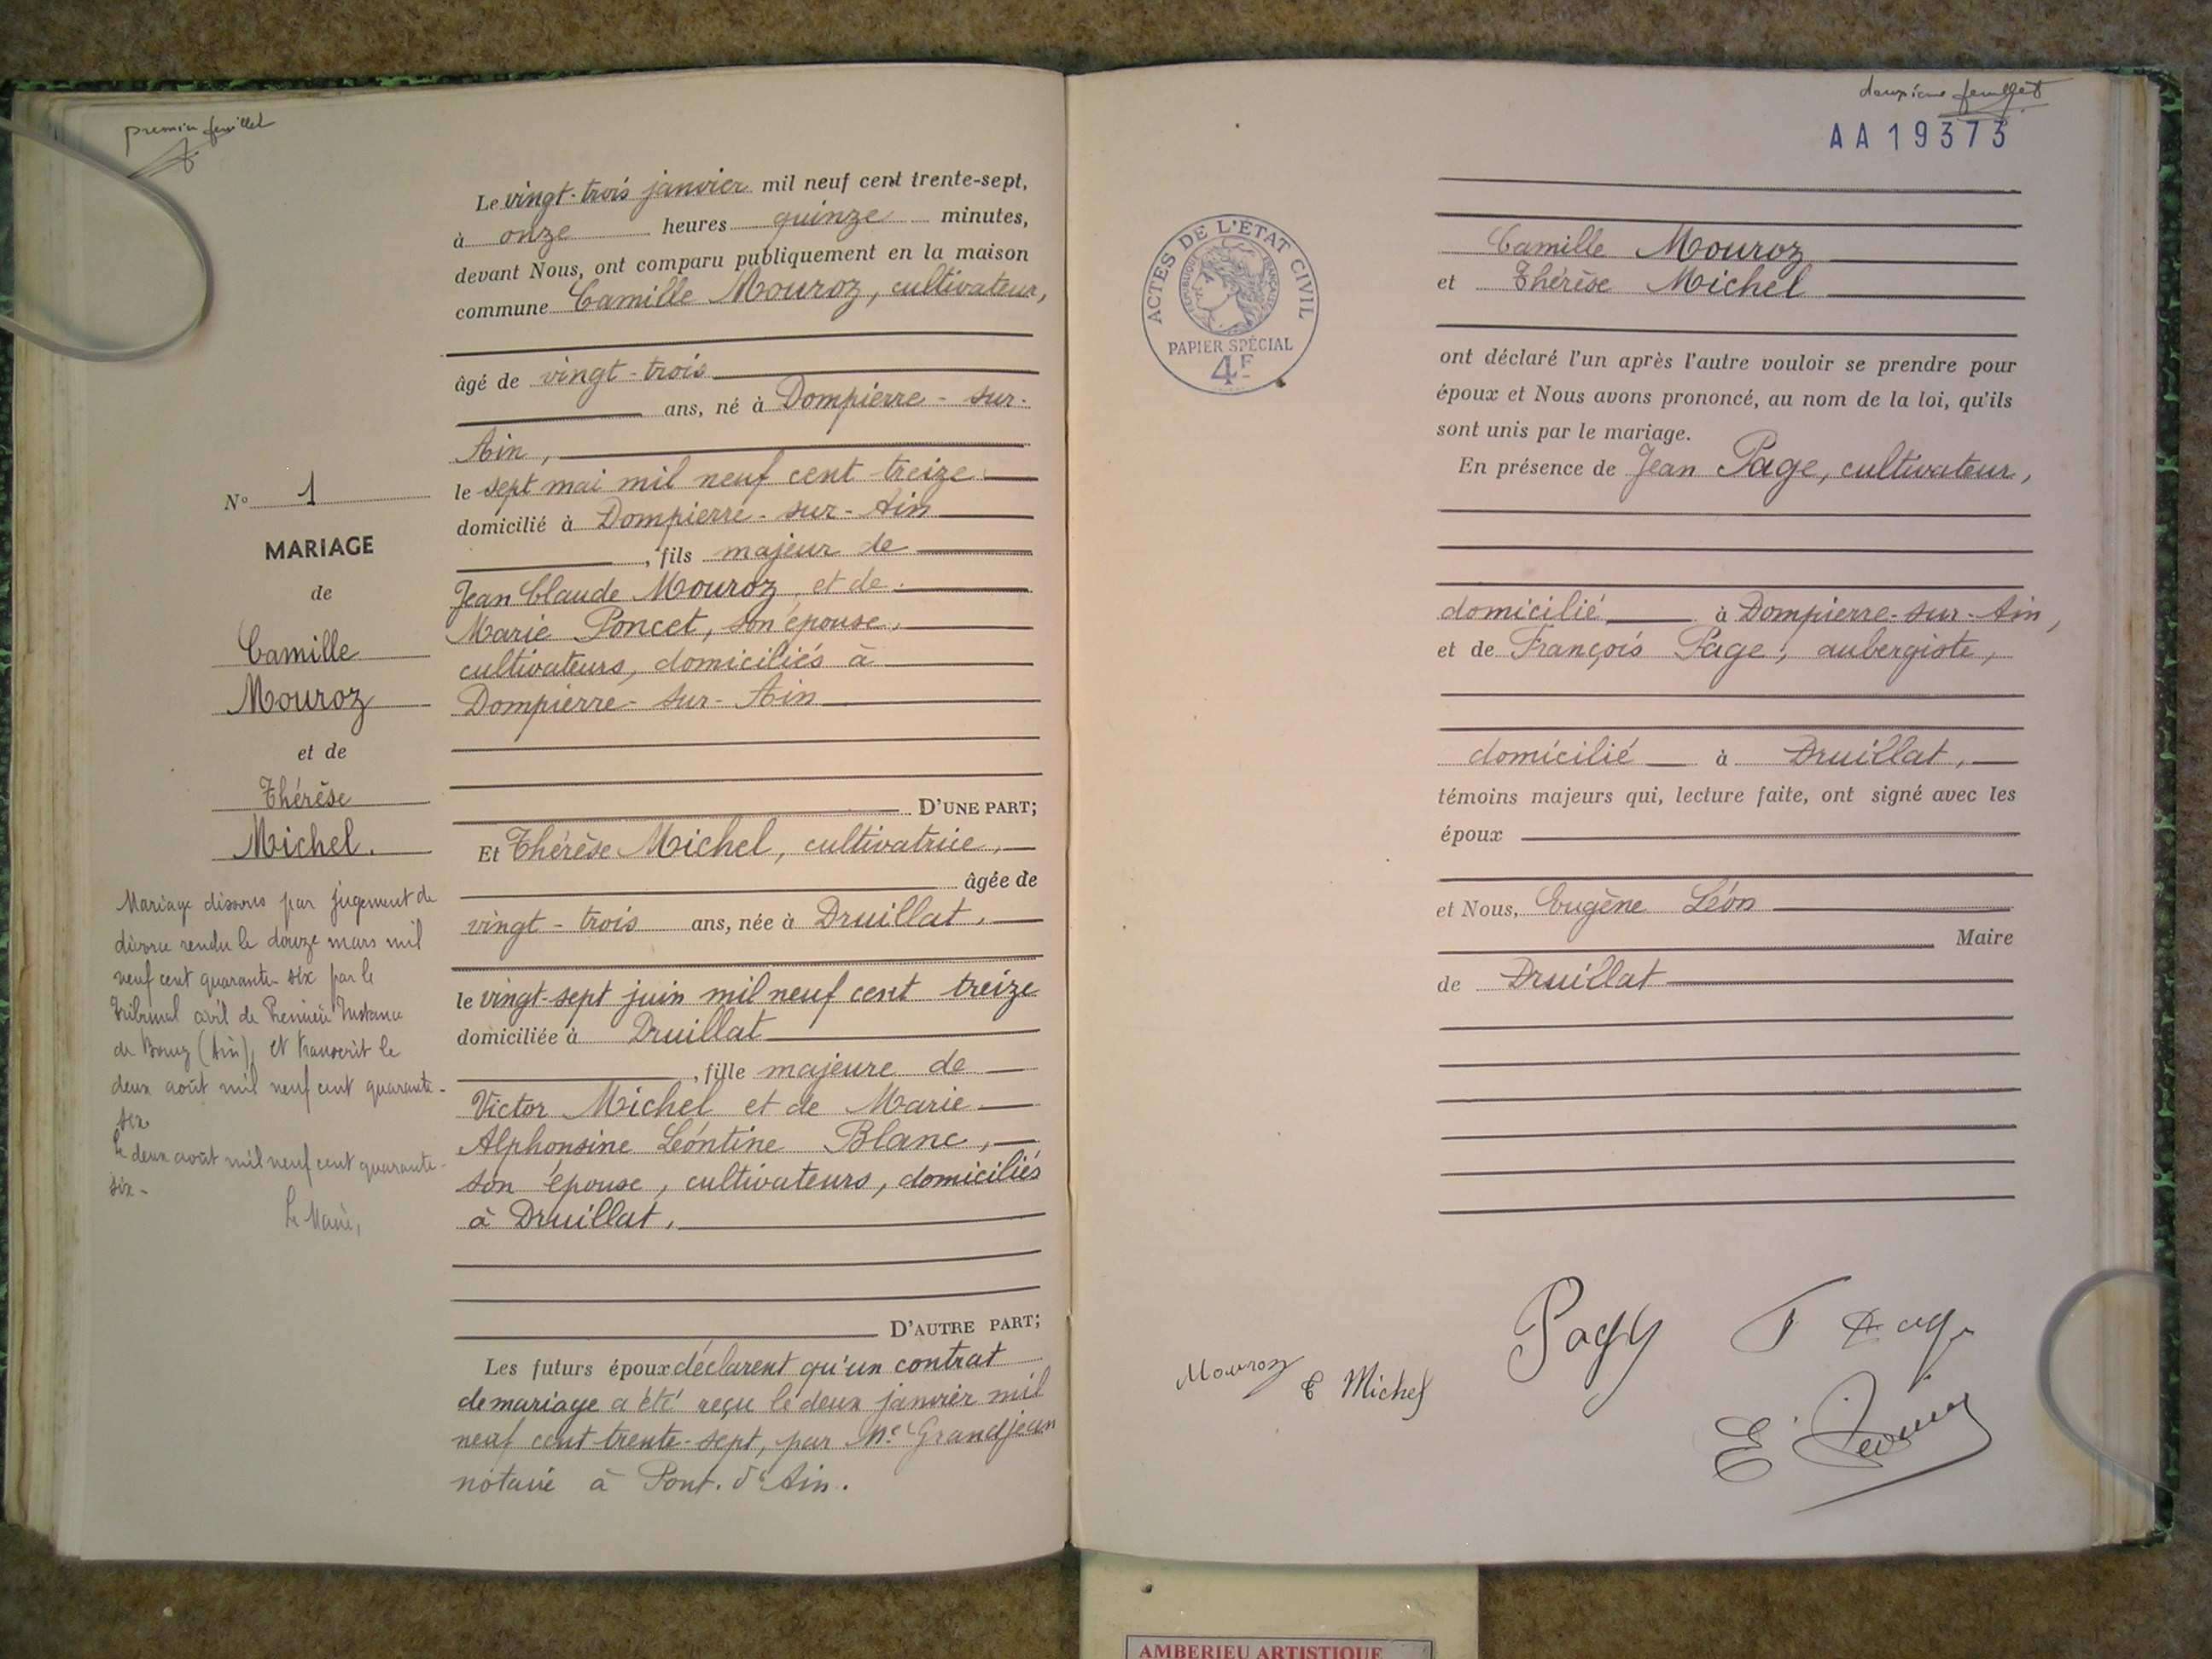 premier feuillet
Le vingt-trois janvier mil neuf cent trente-sept,
à onze heures quinze minutes,
devant Nous, ont comparu publiquement en la maison
commune Camille Mouroz, cultivateur,
âgé de vingt-trois
ans, né à Dompierre-sur-
Ain,
le sept mai mil neuf cent treize
domicilié à Dompierre-sur-Ain
, fils majeur de
Jean Claude Mouroz, et de
Marie Poncet, son épouse,
cultivateurs, domiciliés à
Dompierre-sur-Ain
D'UNE PART;
Et Thérèse Michel, cultivatrice,
âgée de
vingt-trois ans, née à Druillat,
le vingt-sept juin mil neuf cent treize
domiciliée à Druillat
, fille majeure de
Victor Michel et de Marie
Alphonsine Léontine Blanc,
son épouse, cultivateurs, domiciliés
à Druillat,
D'AUTRE PART;
Les futurs époux déclarent qu'un contrat
de mariage a été reçu le deux janvier mil
neuf cent trente-sept, par Me Grandjean
notaire à Pont-d'Ain.
N° 1
MARIAGE
de
Camille
Mouroz
et de
Thérèse
Michel.
Mariage dissous par jugement de
divorce rendu le douze mars mil
neuf cent quarante-six par le
Tribunal civil de Première Instance
de Bourg (Ain), et transcrit le
deux août mil neuf cent quarante-
six
Le deux août mil neuf cent quarante-
six-
Le Maire,
deuxième feuillet
AA19373
ACTES DE L'ÉTAT CIVIL
RÉPUBLIQUE FRANÇAISE
PAPIER SPÉCIAL
4F
Camille Mouroz
et Thérèse Michel
ont déclaré l'un après l'autre vouloir se prendre pour
époux et Nous avons prononcé, au nom de la loi, qu'ils
sont unis par le mariage.
En présence de Jean Page, cultivateur,
domicilié à Dompierre-sur-Ain,
et de François Page, aubergiste,
domicilié à Druillat,
témoins majeurs qui, lecture faite, ont signé avec les
époux
et Nous, Eugène Léon
Maire
de Druillat
Mouroz
Michel
F Page
AMBERIEU ARTISTIQUE